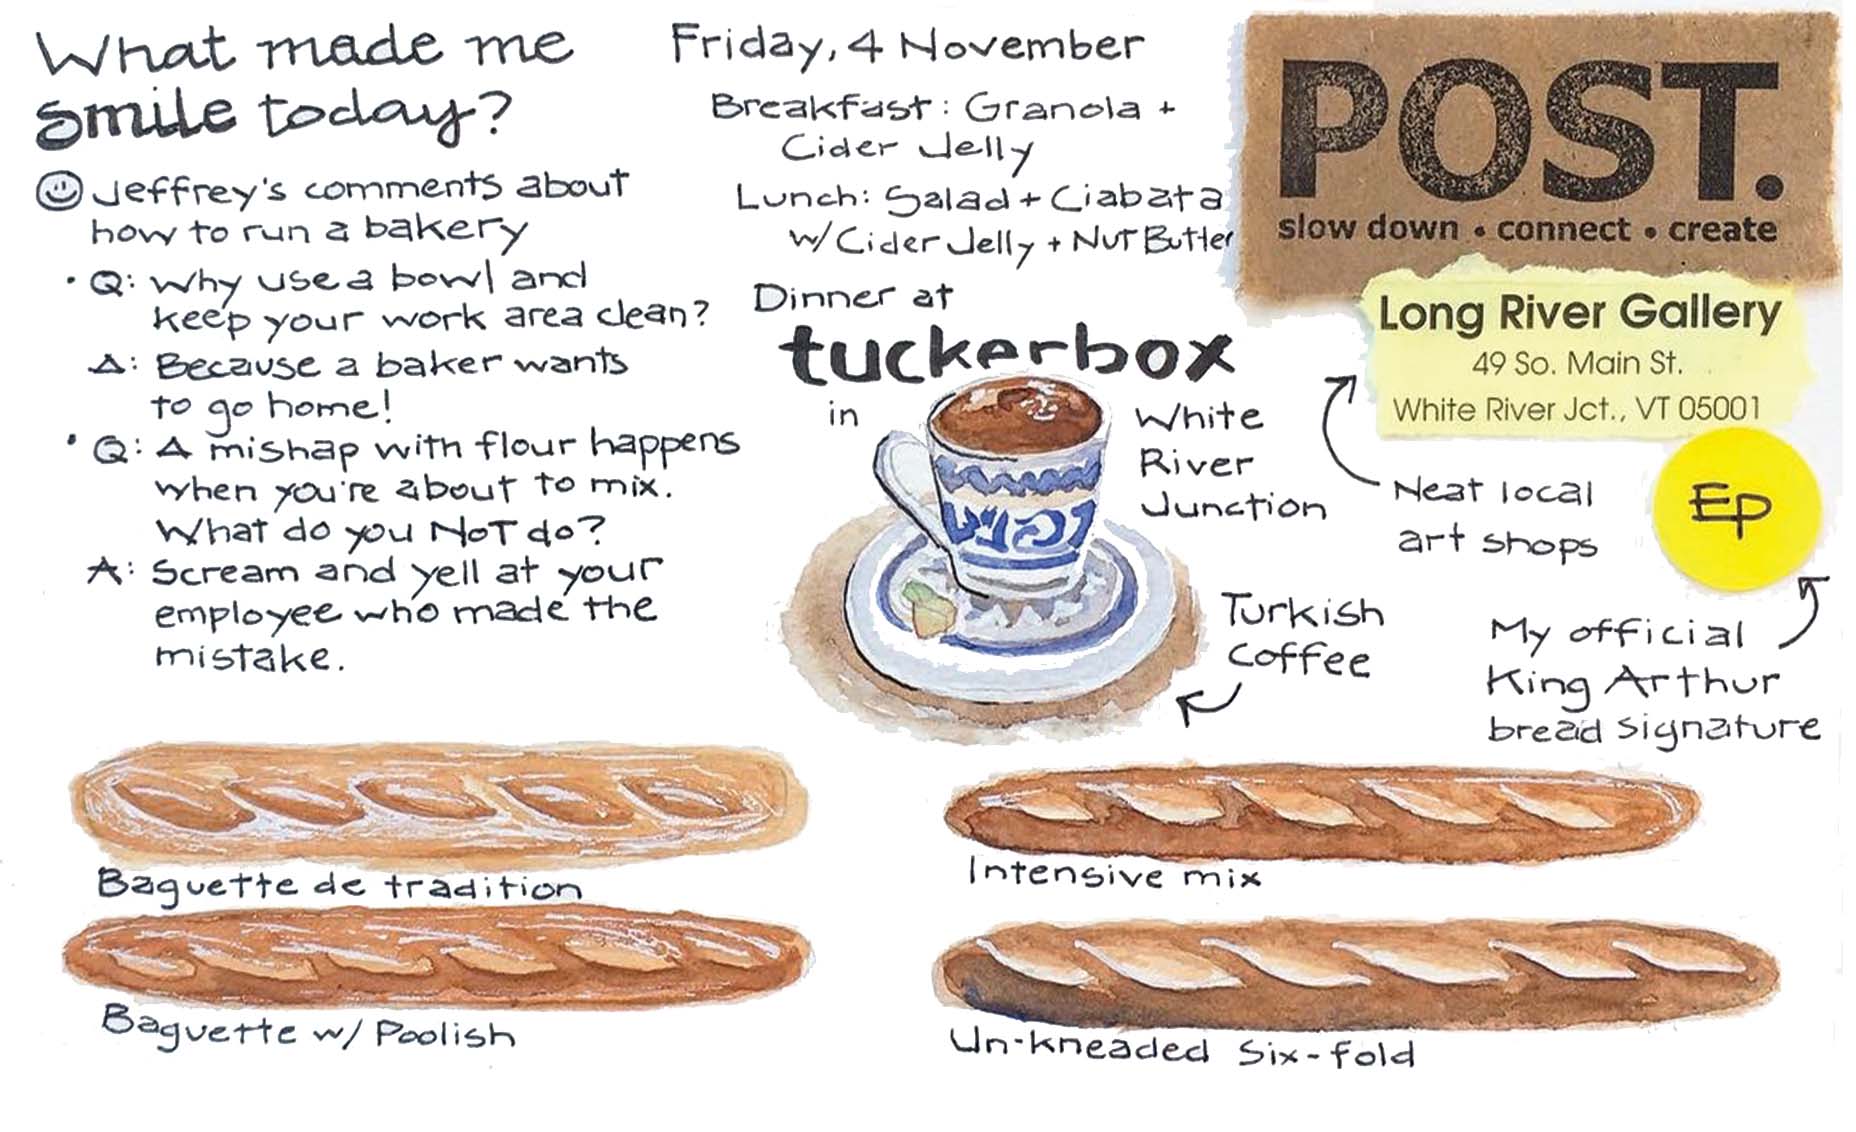 What made me
smile today?
Jeffrey's comments about
how to run a bakery
• Q: Why use a bowl and
keep your work area clean?
A: Because a baker wants
to go home!
• Q: A mishap with flour happens
when you're about to mix.
What do you NOT do?
A: Scream and yell at your
employee who made the
mistake.
Friday, 4 November
Breakfast: Granola +
Cider Jelly
Lunch: Salad + Ciabata
w/ Cider Jelly + Nut Butter
Dinner at
tuckerbox
in
White
River
Junction
Turkish
Coffee
POST.
slow down • connect • create
Long River Gallery
49 So. Main St.
White River Jct., VT 05001
Neat local
art shops
EP
My official
King Arthur
bread signature
Baguette de tradition
Baguette w/ Poolish
Intensive mix
Un-kneaded Six-fold